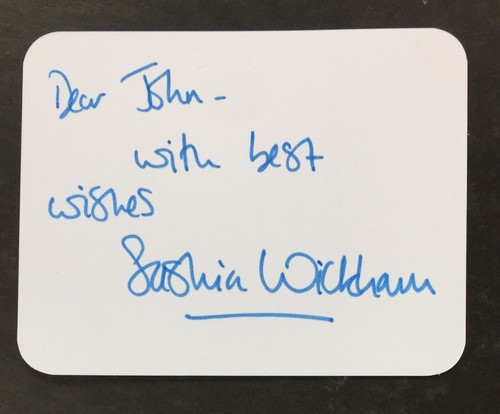 Dear John -
with best
wishes
Saskia Wickham